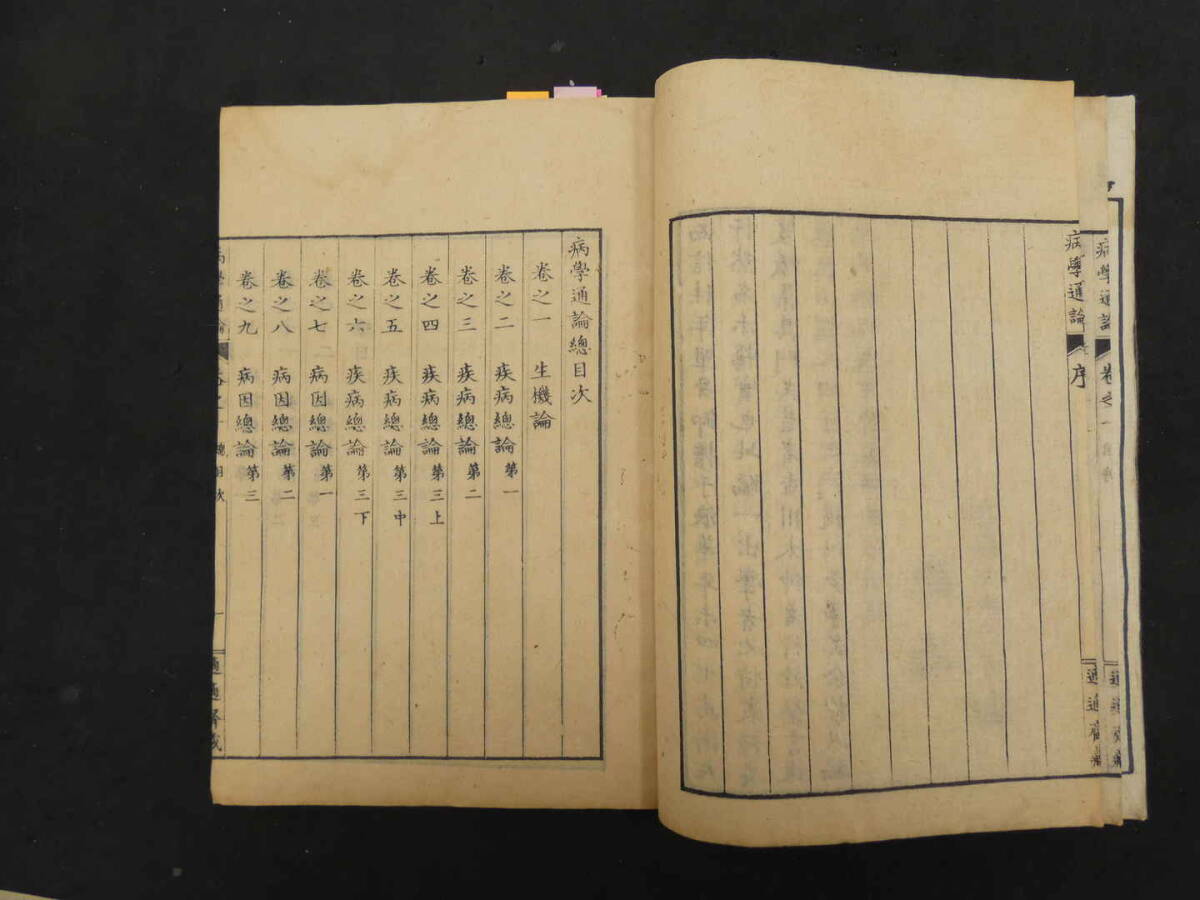 病學通論
卷之一
自序
病學通論
序
病學通論總目次
卷之一 生機論
卷之二 疾病總論第一
卷之三 疾病總論第二
卷之四 疾病總論第三上
卷之五 疾病總論第三中
卷之六 疾病總論第三下
卷之七 病因總論第一
卷之八 病因總論第二
卷之九 病因總論第三
病學通論
總目次
一